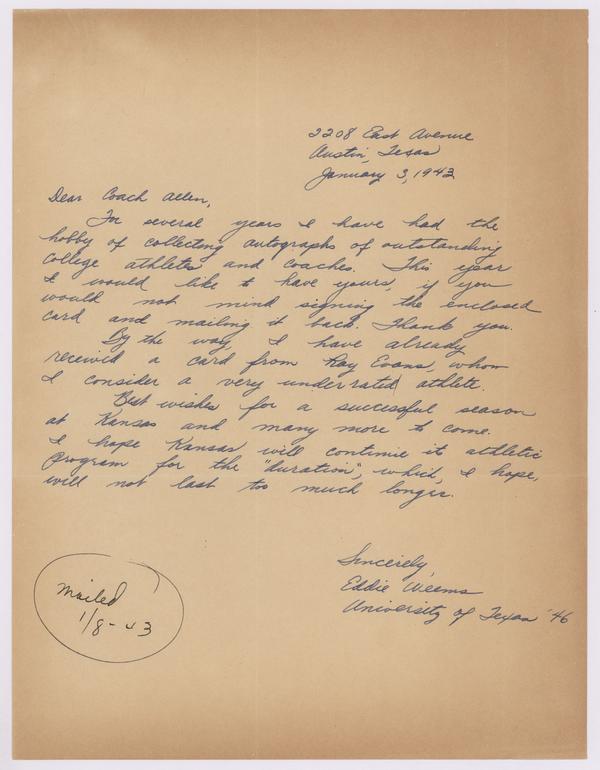 2208 East Avenue
Austin, Texas
January 3, 1943
Dear Coach Allen,
For several years I have had the
hobby of collecting autographs of outstanding
college athletes and coaches. This year
I would like to have yours, if you
would not mind signing the enclosed
card and mailing it back. Thank you.
By the way, I have already
received a card from Ray Evans, whom
I consider a very underrated athlete.
Best wishes for a successful season
at Kansas and many more to come.
I hope Kansas will continue it athletic
program for the "duration", which, I hope,
will not last too much longer.
Sincerely,
Eddie Weems
University of Texas '46
Mailed
1/8-43